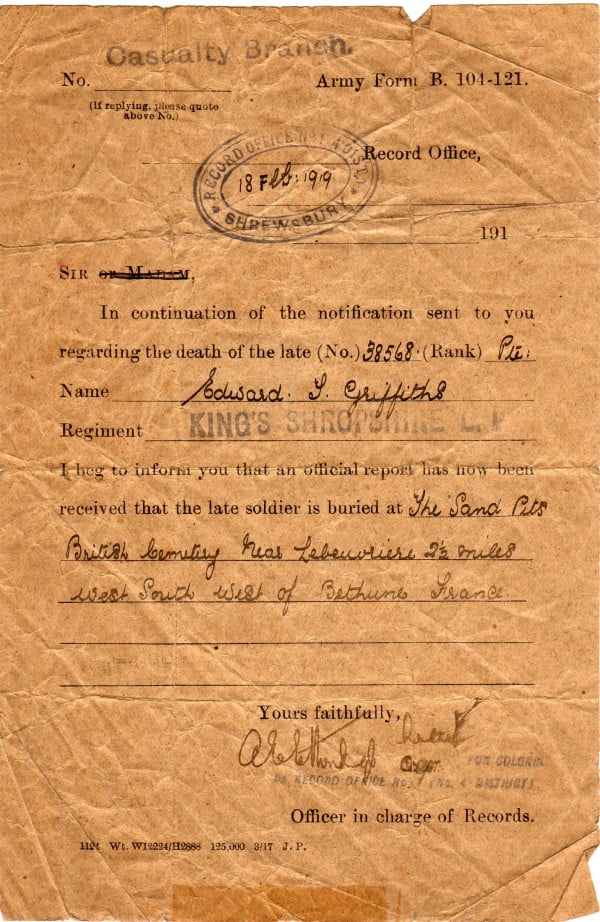 Casualty Branch.
No.
Army Form B. 104-121.
(If replying, please quote
above No.)
RECORD OFFICE No. 1 4 DIST.
Record Office,
18 Feb: 1919
SHREWSBURY
191
SIR or MADAM,
In continuation of the notification sent to you
regarding the death of the late (No.) 38568. (Rank) Pte:
Name Edward. S. Griffiths
Regiment KING'S SHROPSHIRE L.I
I beg to inform you that an official report has now been
received that the late soldier is buried at The Sand Pits
British Cemetery Near Labeuvriere 2½ miles
West South West of Bethune France.
Yours faithfully,
FOR COLONEL
RECORD OFFICE No. 1 (No. 4 DISTRICT).
Officer in charge of Records.
1124 Wt. W12224/H2888 125,000 3/17 J. P.